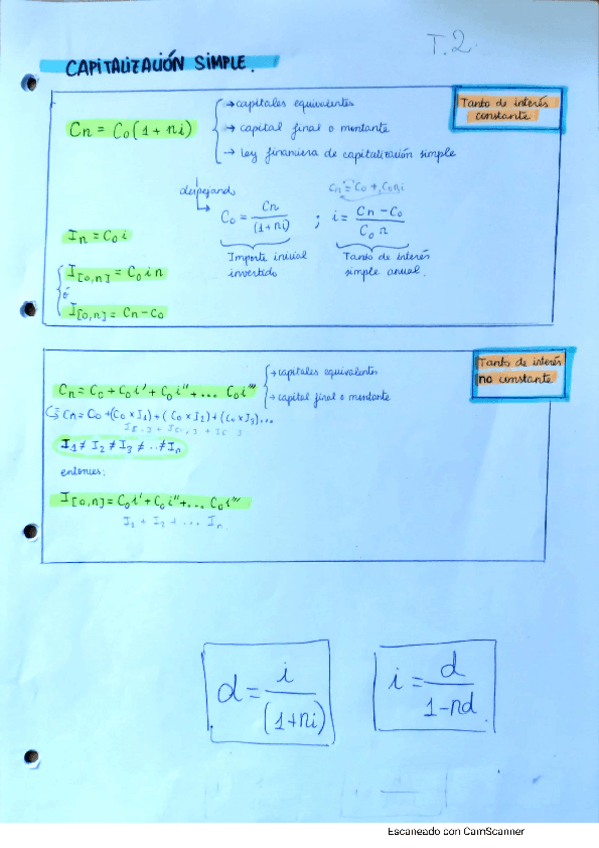 T.2
CAPITALIZACIÓN SIMPLE.
Tanto de interés
constante
Cn = Co(1+ni)
→ capitales equivalentes
→ capital final o montante
→ Ley financiera de capitalización simple
despejando
Cn = Co + Coni
Co = Cn / (1+ni) ; i = Cn - Co / Co n
Importe inicial
invertido
Tanto de interés
simple anual.
In = Co i
I[0,n] = Co i n
ó
I[0,n] = Cn - Co
Tanto de interés
no constante
Cn = Co + Co i' + Co i'' + ... Co i'''
→ capitales equivalentes
→ capital final o montante
Cn = Co + (Co x I1) + (Co x I2) + (Co x I3)...
I1 ≠ I2 ≠ I3 ≠ ... ≠ In
entonces:
I[0,n] = Co i' + Co i'' + ... Co i'''
I1 + I2 + ... In
d = i / (1+ni)
i = d / 1-nd
Escaneado con CamScanner